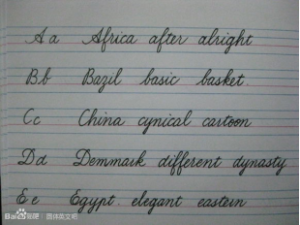 A a Africa after alright
B b Bazil basic basket
C c China cynical cartoon
D d Demmark different dynasty
E e Egypt. elegant eastern